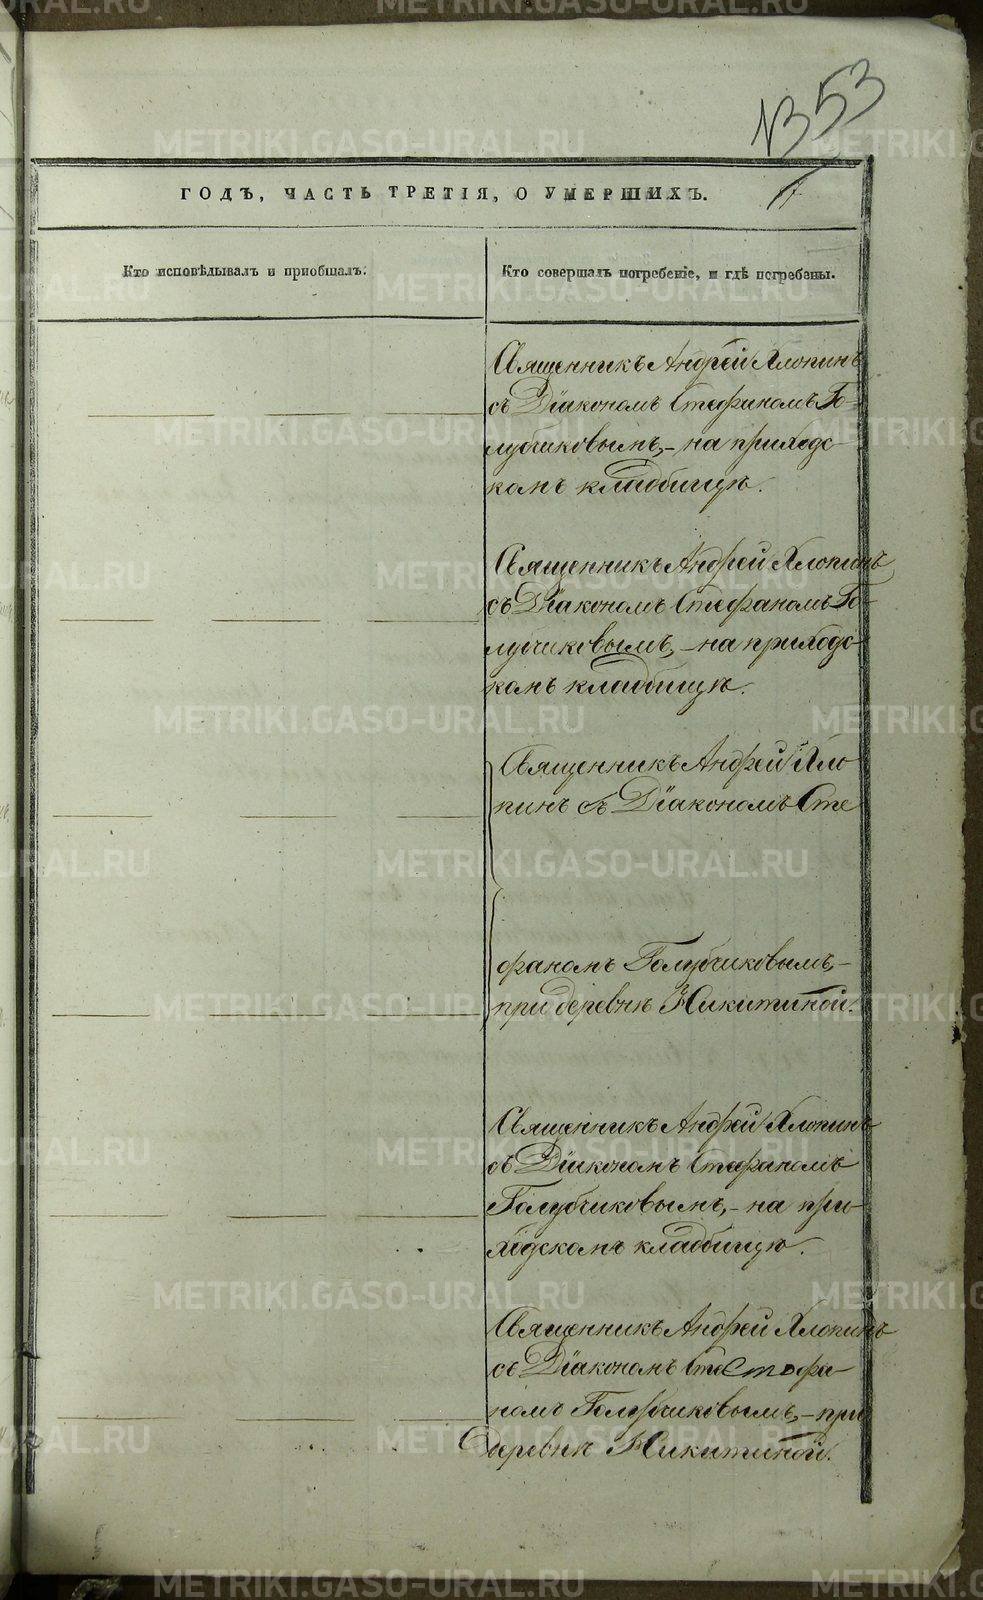 353
ГОДЪ, ЧАСТЬ ТРЕТІЯ, О УМЕРШИХЪ.
Кто исповѣдывалъ и пріобщалъ.
Кто совершалъ погребеніе, и гдѣ погребены.
Священникъ Андрей Хлопинъ
съ Діакономъ Стефаномъ Го-
лубчиковымъ,- на приходс-
комъ кладбищѣ.
Священникъ Андрей Хлопинъ
съ Діакономъ Стефаномъ Го-
лубчиковымъ,- на приходс-
комъ кладбищѣ.
Священникъ Андрей Хло
пинъ съ Діакономъ Сте
фаномъ Голубчиковымъ,-
при деревнѣ Никитиной.
Священникъ Андрей Хлопинъ
съ Діакономъ Стефаномъ
Голубчиковымъ,- на при-
ходскомъ кладбищѣ.
Священникъ Андрей Хлопинъ
съ Діакономъ
номъ Голубчиковымъ,- при
деревнѣ Никитиной.
METRIKI.GASO-URAL.RU